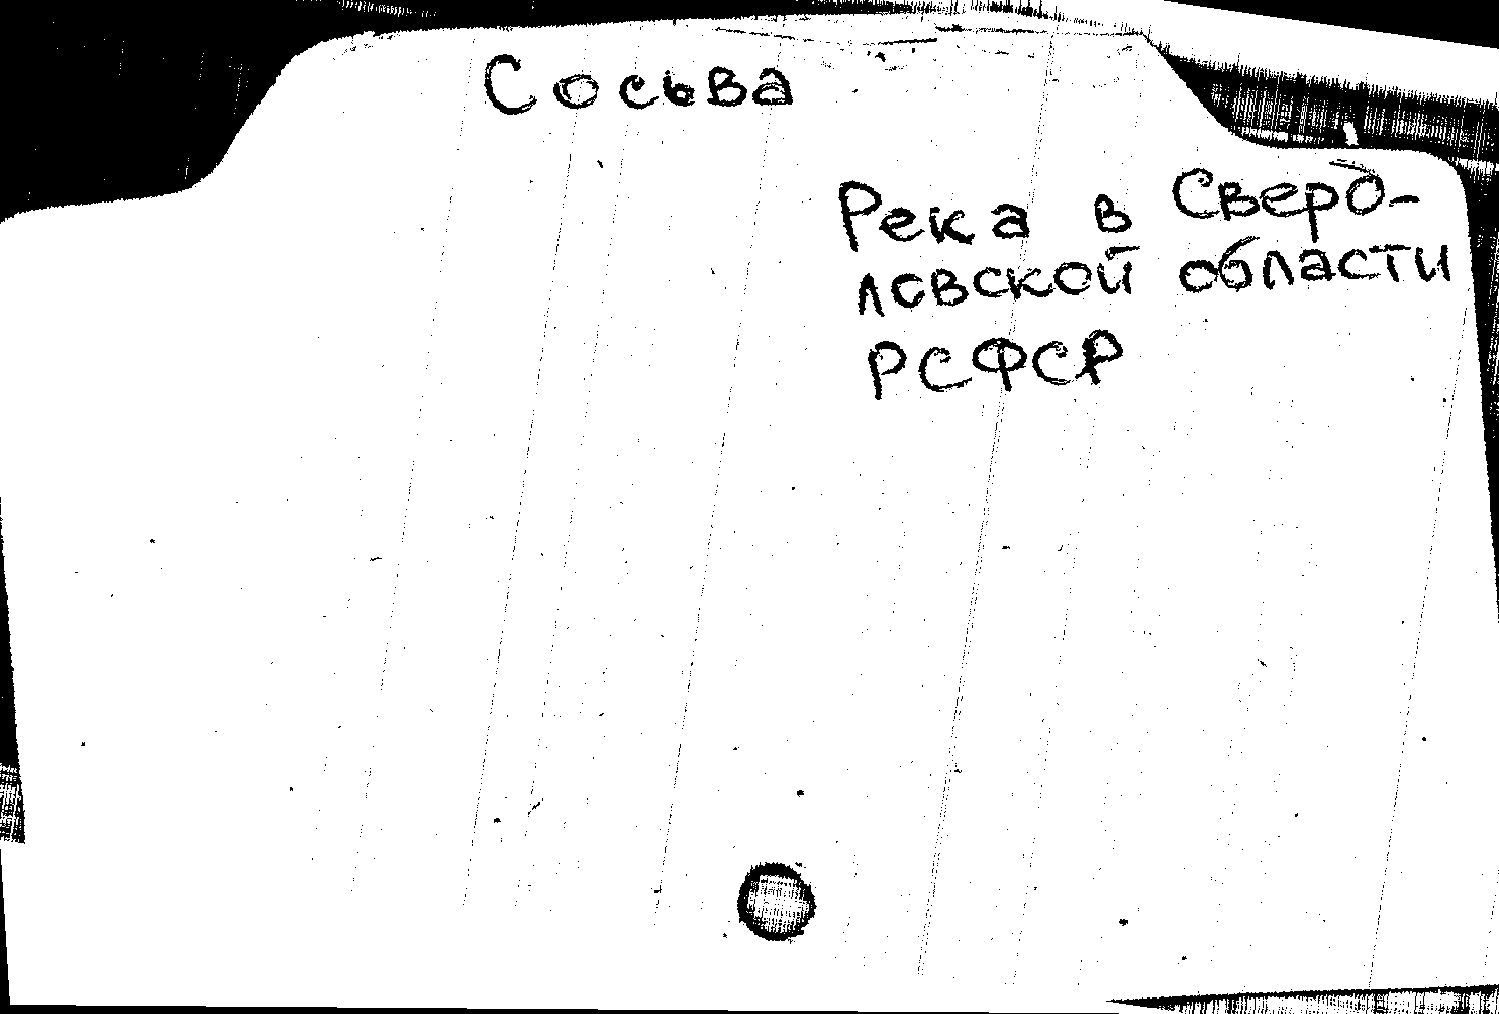 Сосьва
Река в Сверд-
ловской области
РСФСР